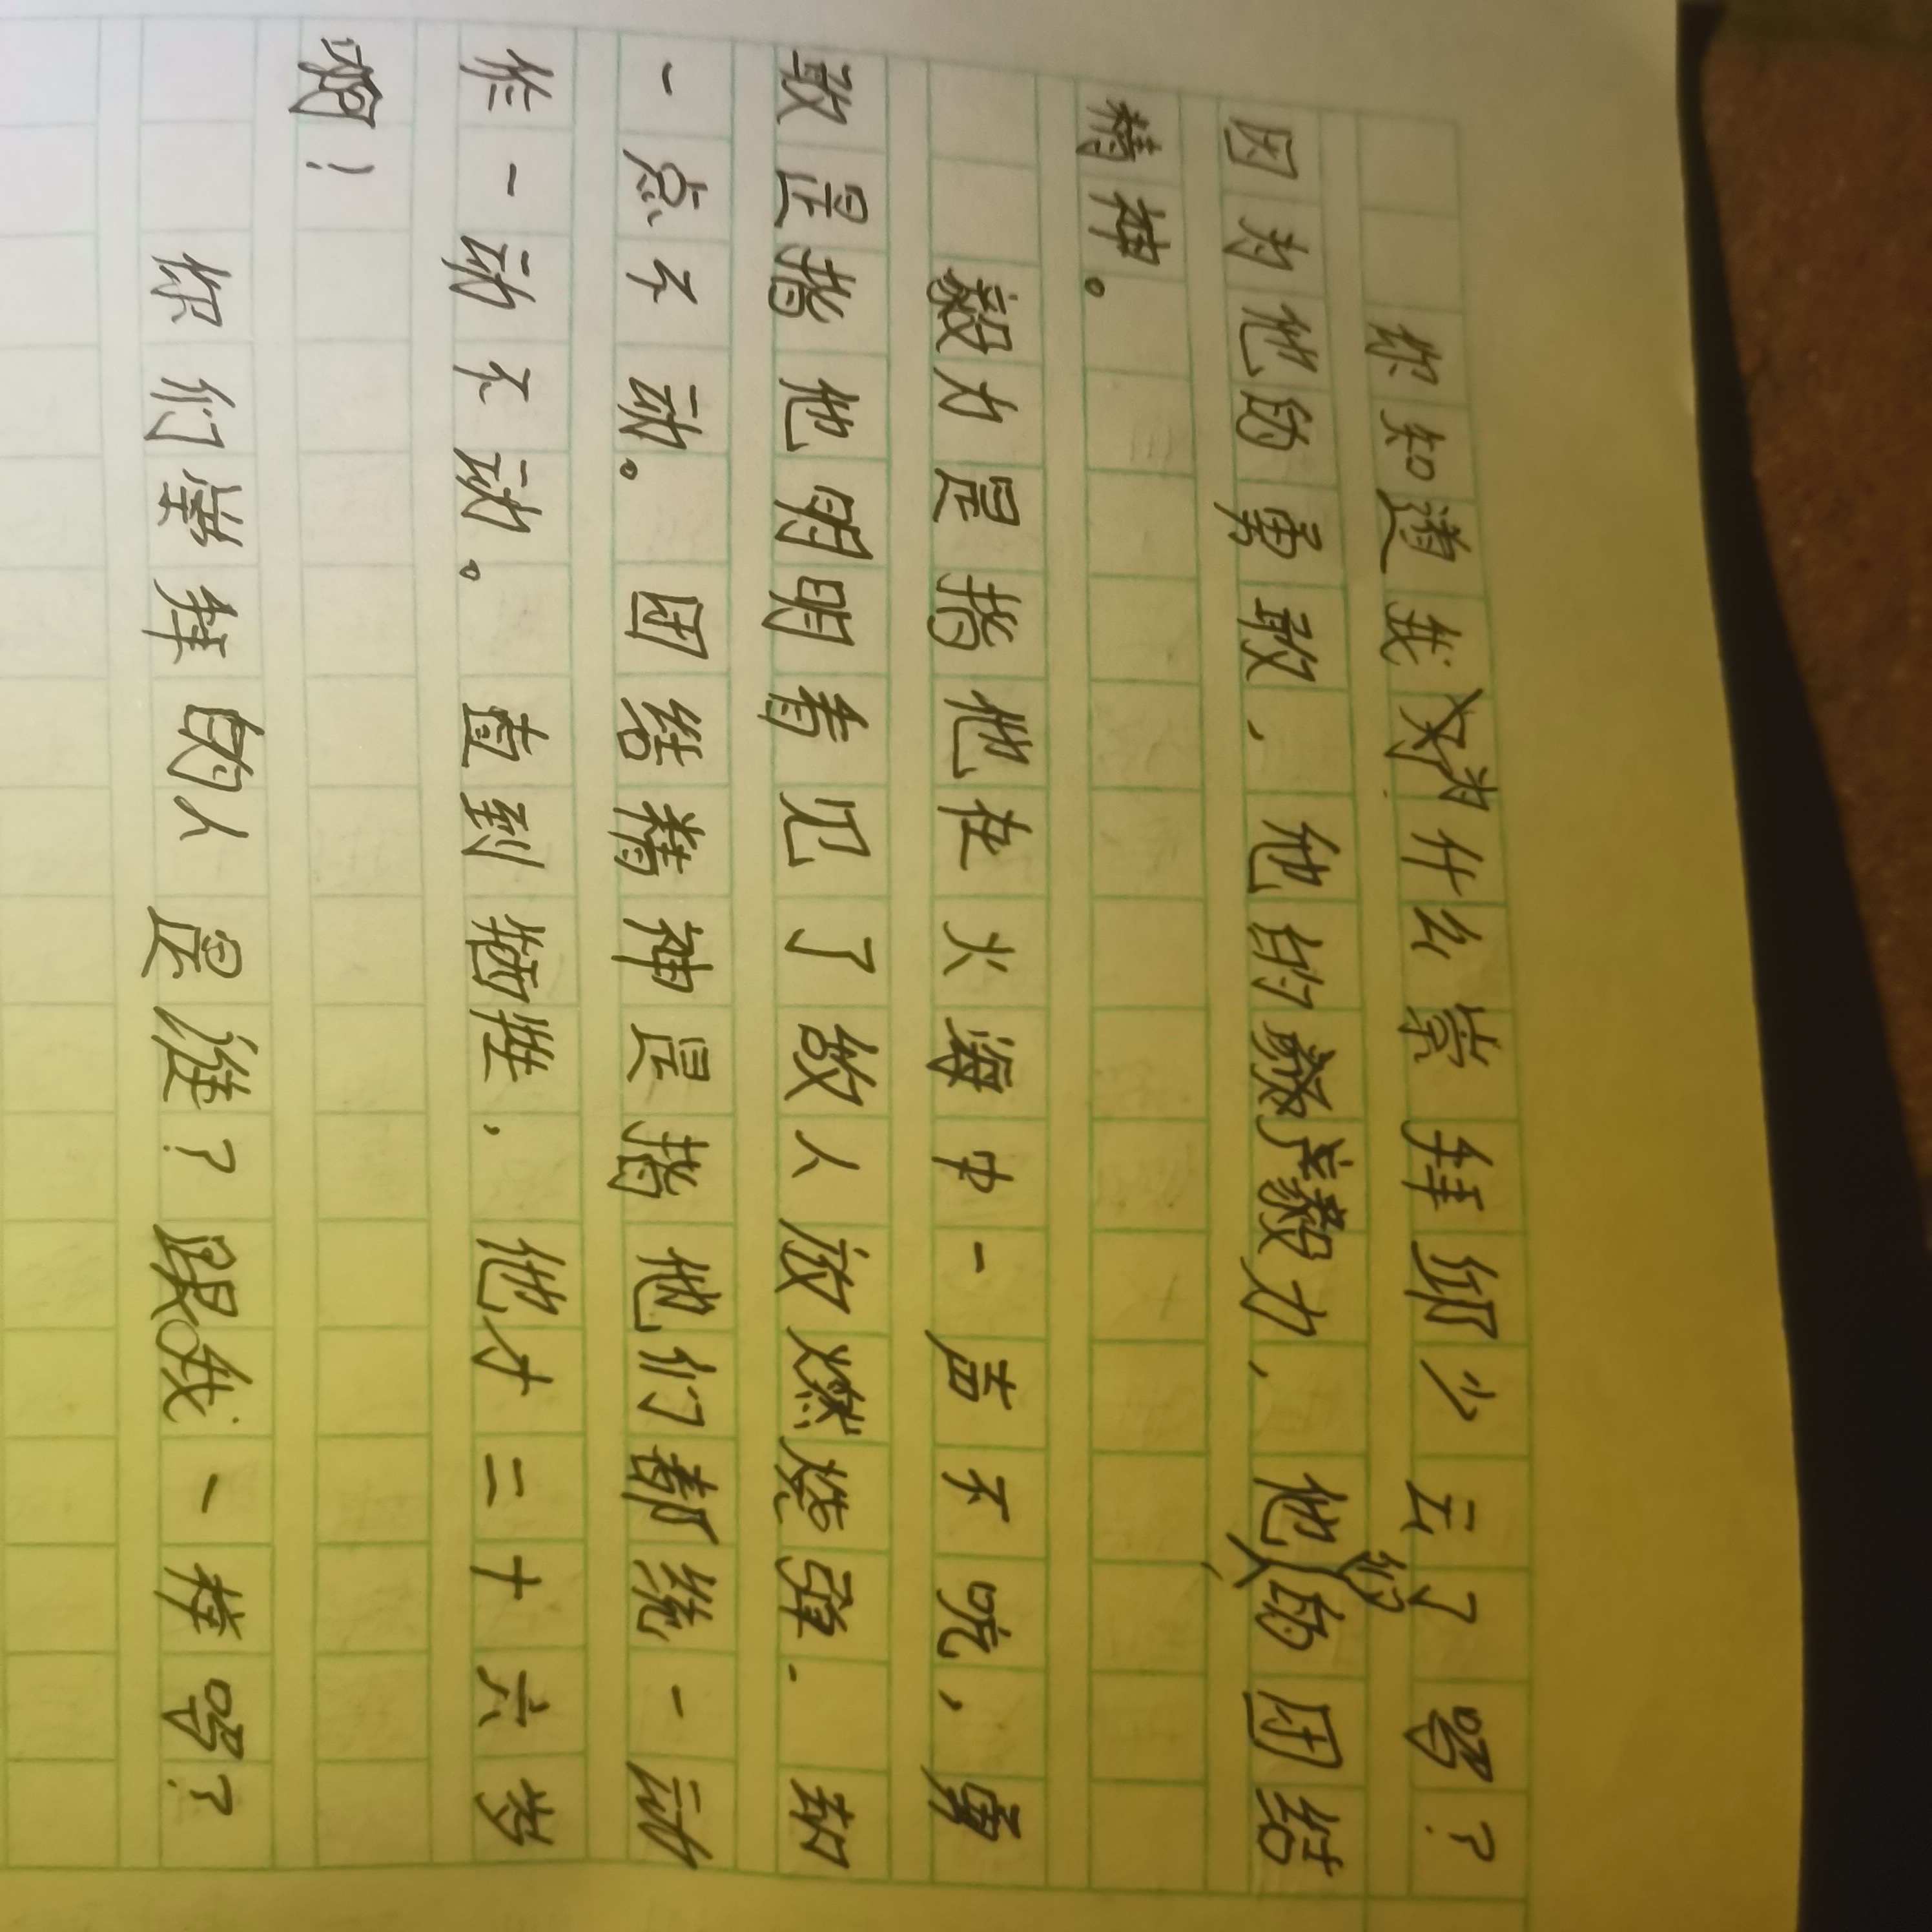 你知道我为什么崇拜邱少云了吗?
因为他的勇敢,他的毅力,他们的团结
精神。
毅力是指他在火海中一声不吭,勇
敢是指他明明看见了敌人放燃烧弹.却
一点子动。团结精神是指他们都统一动
作一动不动。直到牺牲,他才二十六岁
啊!
你们崇拜的人是谁?跟我一样吗?